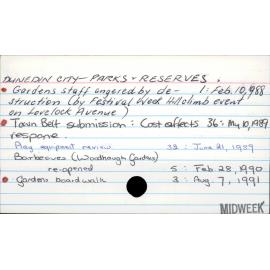 DUNEDIN CITY - PARKS & RESERVES.
• Gardens staff angered by de- 1: Feb. 10, 1988
struction (by Festival Week Hillclimb event
on Lovelock Avenue)
• Town Belt submission: Cost affects 36: My 10, 1989
respone.
Play equipment review 32: June 21, 1989
Barbecues (Woodhaugh Gardens)
re-opened 5: Feb 28, 1990
• Gardens boardwalk 3: Aug. 7, 1991
MIDWEEK